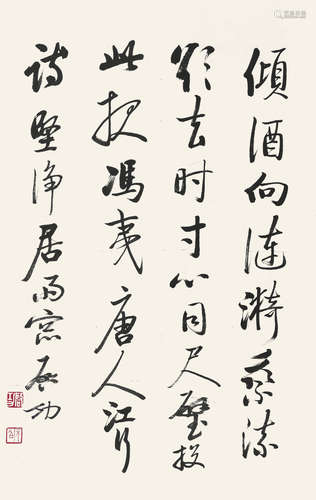 倾酒向涟漪乘流
欲去时寸心同尺璧投
此报冯夷唐人江行
诗坚净居雨窗启功